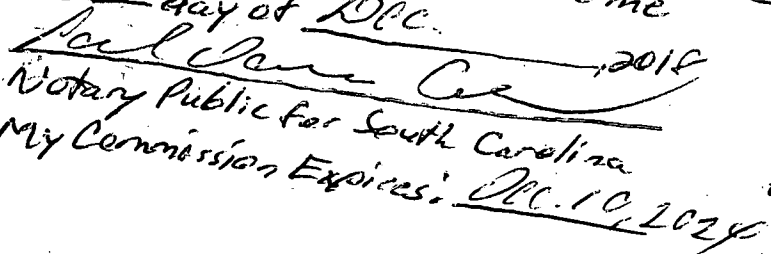 day of Dec. , 2018
Notary Public for South Carolina
My Commission Expires: Dec. 10, 2024